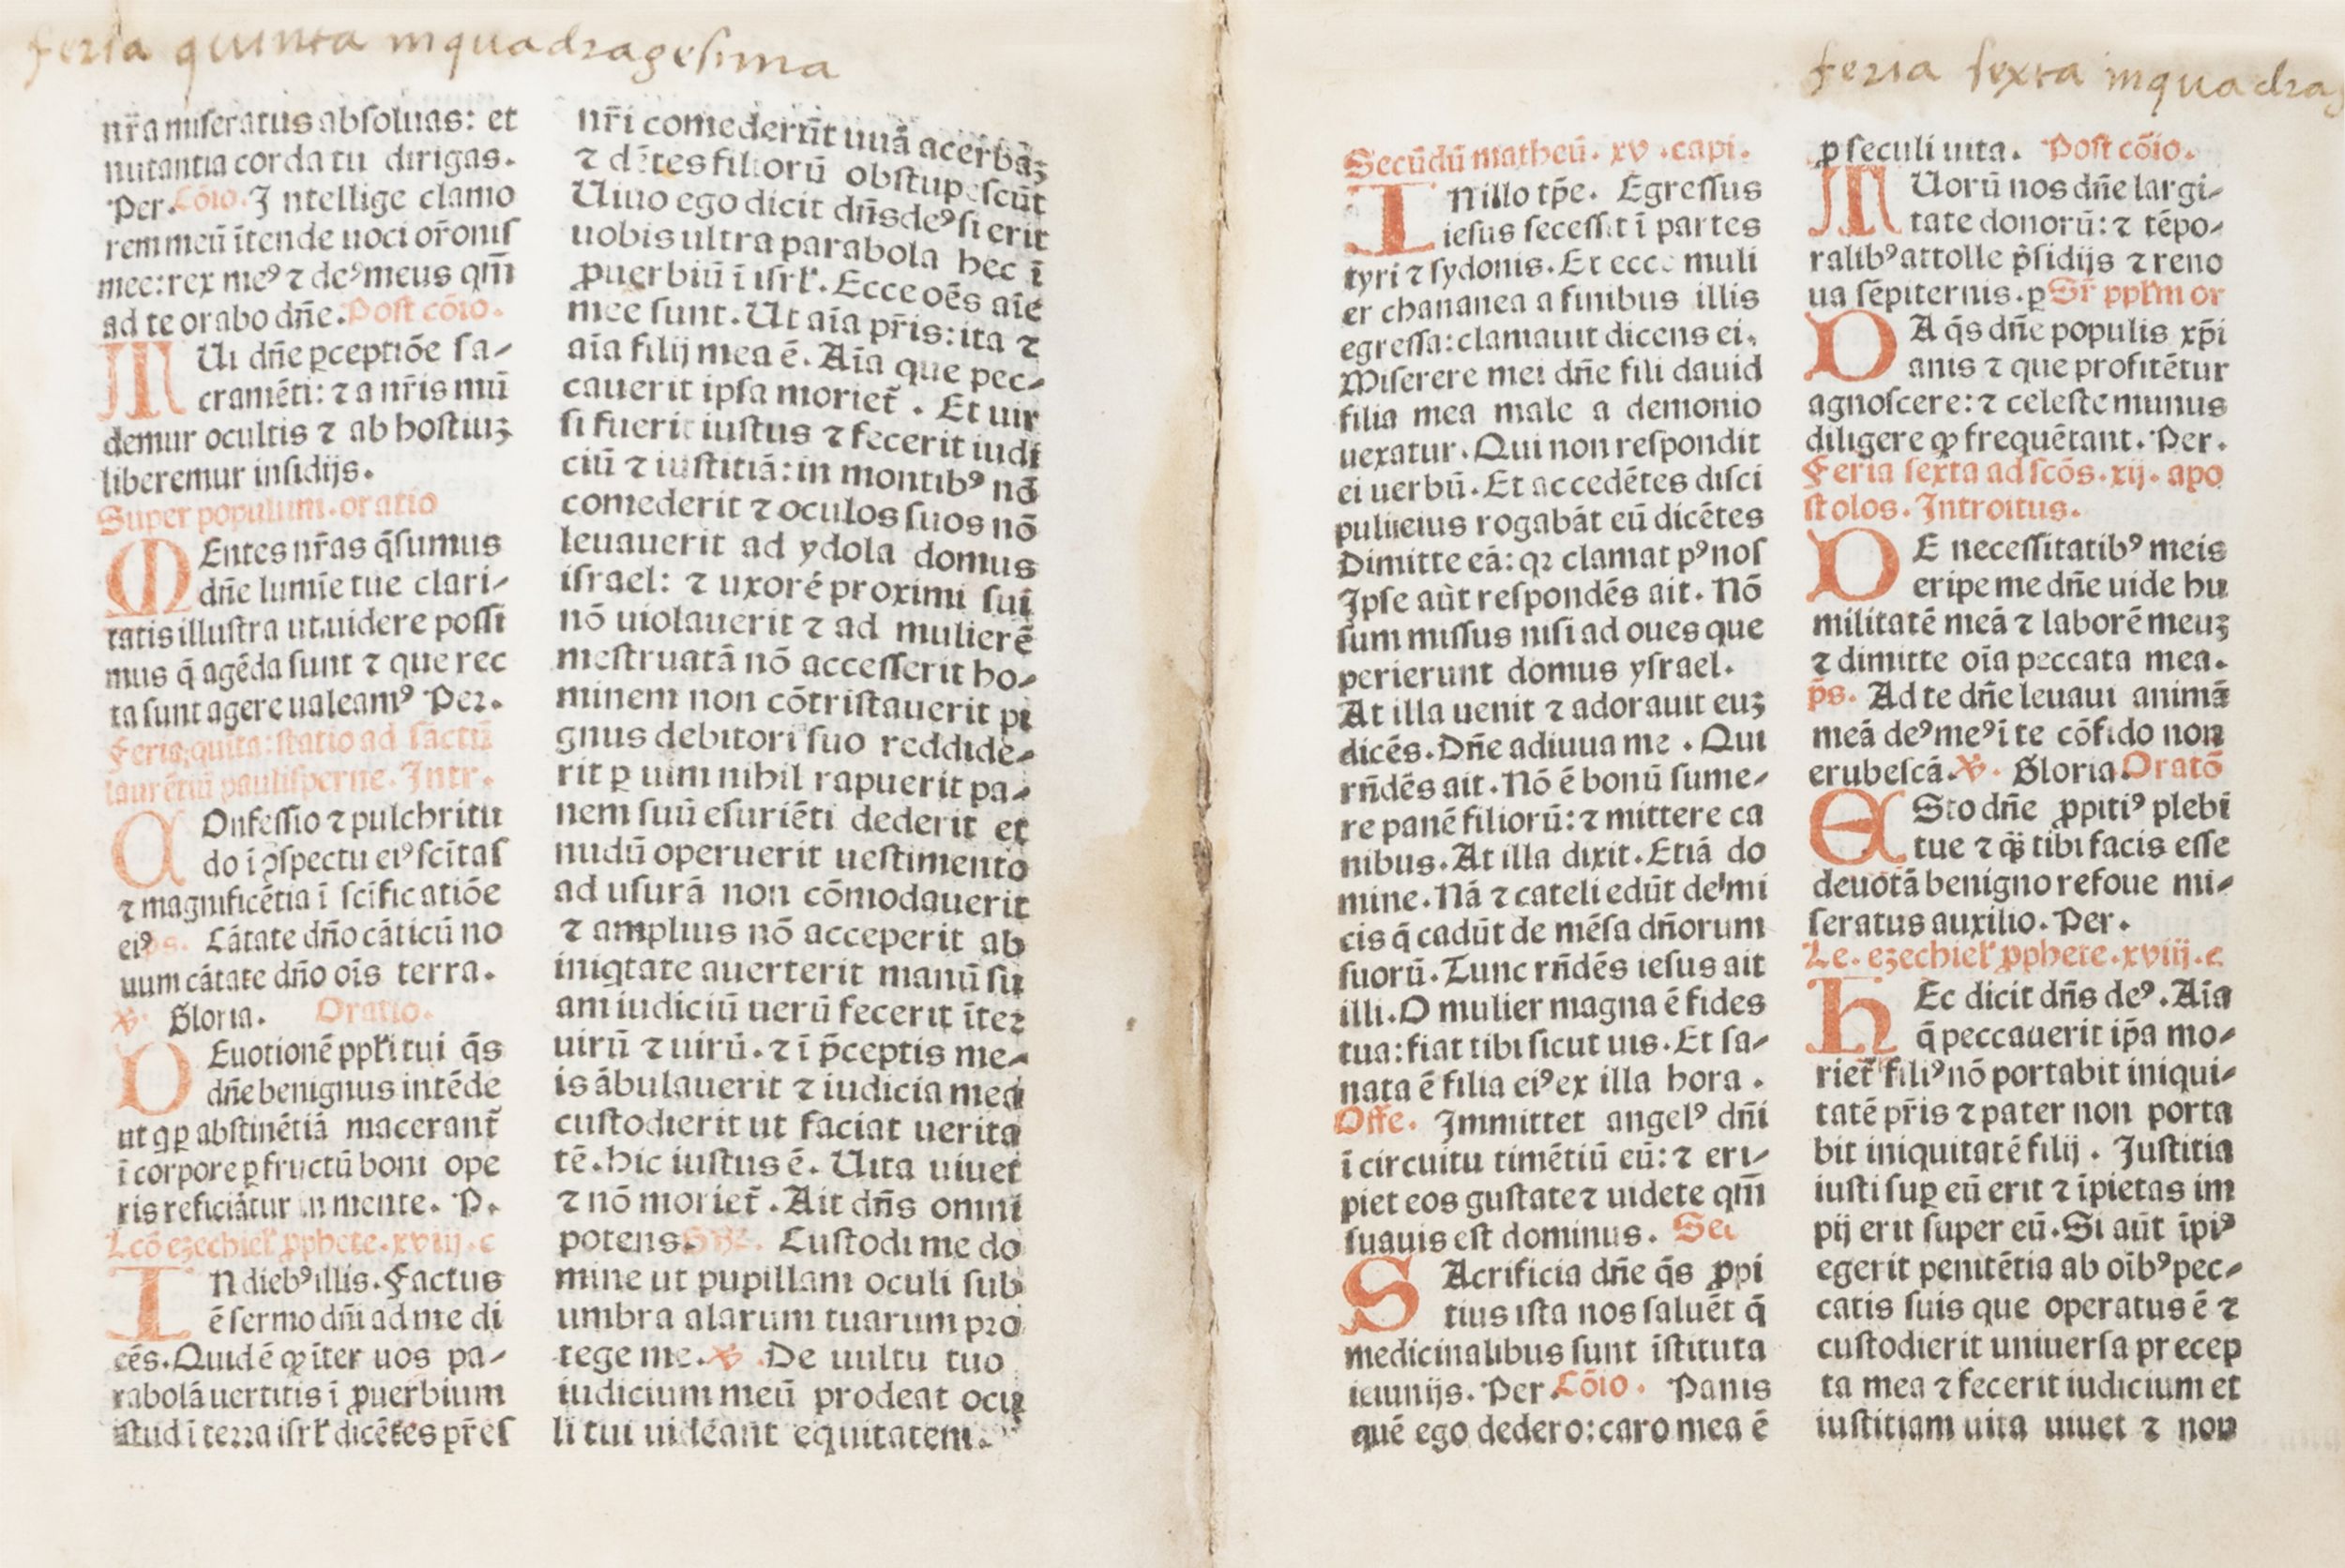 feria quinta in quadragesima
nr̄a miseratus absoluas: et
nutantia corda tu dirigas.
Per. Cōio. Intellige clamo
rem meū ītende uoci or̄onis
mee: rex meꝰ ⁊ deꝰ meus qm̄
ad te orabo dn̄e. Post cōio.
MUi dn̄e ꝑceptiōe sa-
cramēti: ⁊ a nr̄is mū
demur ocultis ⁊ ab hostiuꝫ
liberemur insidijs.
Super populum. oratio
MEntes nr̄as q̄sumus
dn̄e lumīe tue clari-
tatis illustra ut uidere possi
mus q̄ agēda sunt ⁊ que rec
ta sunt agere ualeamꝰ Per.
Feria quīta: statio ad sāctū
laurētiū paulisperne. Intr.
COnfessio ⁊ pulchritu
do ī ↄspectu eiꝰ scītas
⁊ magnificētia ī scīficatiōe
eiꝰ ps. Cātate dn̄o cāticū no
uum cātate dn̄o oīs terra.
℣. Gloria. Oratio.
DEuotionē ppl̄i tui q̄s
dn̄e benignus intēde
ut q ꝑ abstinētiā macerant̄
ī corpore ꝑ fructū boni ope
ris reficiātur in mente. P.
Lcō ezechiel̄ ꝓphete. xviij. c
IN diebꝰ illis. Factus
ē sermo dn̄i ad me di
cēs. Quid ē ꝙ īter uos pa-
rabolā uertitis ī ꝓuerbium
istud ī terra isrl̄ dicētes pr̄es
nr̄i comederūt uuā acerbāꝫ
⁊ dētes filiorū obstupescūt
Uiuo ego dicit dn̄s deꝰ si erit
uobis ultra parabola hec ī
ꝓuerbiū ī isrl̄. Ecce oēs aīe
mee sunt. Ut aīa pr̄is: ita ⁊
aīa filij mea ē. Aīa que pec-
cauerit ipsa moriet̄. Et uir
si fuerit iustus ⁊ fecerit iudi
ciū ⁊ iustitiā: in montibꝰ nō
comederit ⁊ oculos suos nō
leuauerit ad ydola domus
israel: ⁊ uxorē proximi sui
nō uiolauerit ⁊ ad mulierē
mēstruatā nō accesserit ho-
minem non cōtristauerit pi
gnus debitori suo reddide-
rit ꝑ uim nihil rapuerit pa-
nem suū esuriēti dederit et
nudū operuerit uestimento
ad usurā non cōmodauerit
⁊ amplius nō acceperit ab
iniqtate auerterit manū su
am iudiciū uerū fecerit īter
uirū ⁊ uirū. ⁊ ī p̄ceptis me-
is ābulauerit ⁊ iudicia mea
custodierit ut faciat uerita
tē. hic iustus ē. Uita uiuet
⁊ nō moriet̄. Ait dn̄s omni
potens. Gr̄. Custodi me do
mine ut pupillam oculi sub
umbra alarum tuarum pro
tege me. ℣. De uultu tuo
iudicium meū prodeat ocu
li tui uidēant equitatem.
feria sexta in quadrag
Secūdū matheū. xv. capi.
IN illo tp̄e. Egressus
iesus secessit ī partes
tyri ⁊ sydonis. Et ecce muli
er chananea a finibus illis
egressa: clamauit dicens ei.
Miserere mei dn̄e fili dauid
filia mea male a demonio
uexatur. Qui non respondit
ei uerbū. Et accedētes disci
puli eius rogabāt eū dicētes
Dimitte eā: qꝛ clamat pꝰ nos
Ipse aūt respondēs ait. Nō
sum missus nisi ad oues que
perierunt domus ysrael.
At illa uenit ⁊ adorauit euꝫ
dicēs. Dn̄e adiuua me. Qui
rn̄dēs ait. Nō ē bonū sume-
re panē filiorū: ⁊ mittere ca
nibus. At illa dixit. Etiā do
mine. Nā ⁊ cateli edūt de mi
cis q̄ cadūt de mēsa dn̄orum
suorū. Tunc rn̄dēs iesus ait
illi. O mulier magna ē fides
tua: fiat tibi sicut uis. Et sa-
nata ē filia eiꝰ ex illa hora.
Offe. Immittet angelꝰ dn̄i
ī circuitu timētiū eū: ⁊ eri-
piet eos gustate ⁊ uidete qm̄
suauis est dominus. Sec
SAcrificia dn̄e q̄s ꝓpi
tius ista nos saluēt q̄
medicinalibus sunt īstituta
ieiunijs. Per. Cōio. Panis
quē ego dedero: caro mea ē
ꝓ seculi uita. Post cōio.
MUorū nos dn̄e largi-
tate donorū: ⁊ tēpo-
ralibꝰ attolle p̄sidijs ⁊ reno
ua sēpiternis. ꝑ Sr̄ ppl̄m or
DA q̄s dn̄e populis xp̄i
anis ⁊ que profitētur
agnoscere: ⁊ celeste munus
diligere ꝙ frequētant. Per.
Feria sexta ad scōs. xij. apo
stolos. Introitus.
DE necessitatibꝰ meis
eripe me dn̄e uide hu
militatē meā ⁊ laborē meuꝫ
⁊ dimitte oīa peccata mea.
p̄s. Ad te dn̄e leuaui animā
meā deꝰ meꝰ ī te cōfido non
erubescā. ℣. Gloria. Oratō
ESto dn̄e ꝓpitiꝰ plebi
tue ⁊ q̄ꝫ tibi facis esse
deuotā benigno refoue mi-
seratus auxilio. Per.
Le. ezechiel̄ ꝓphete. xviij. c.
HEc dicit dn̄s deꝰ. Aīa
q̄ peccauerit ip̄a mo-
riet̄ filiꝰ nō portabit iniqui-
tatē pr̄is ⁊ pater non porta
bit iniquitatē filij. Justitia
iusti suꝑ eū erit ⁊ īpietas im
pij erit super eū. Si aūt īpiꝰ
egerit penitētia ab oībꝰ pec-
catis suis que operatus ē ⁊
custodierit uniuersa precep
ta mea ⁊ fecerit iudicium et
iustitiam uita uiuet ⁊ non